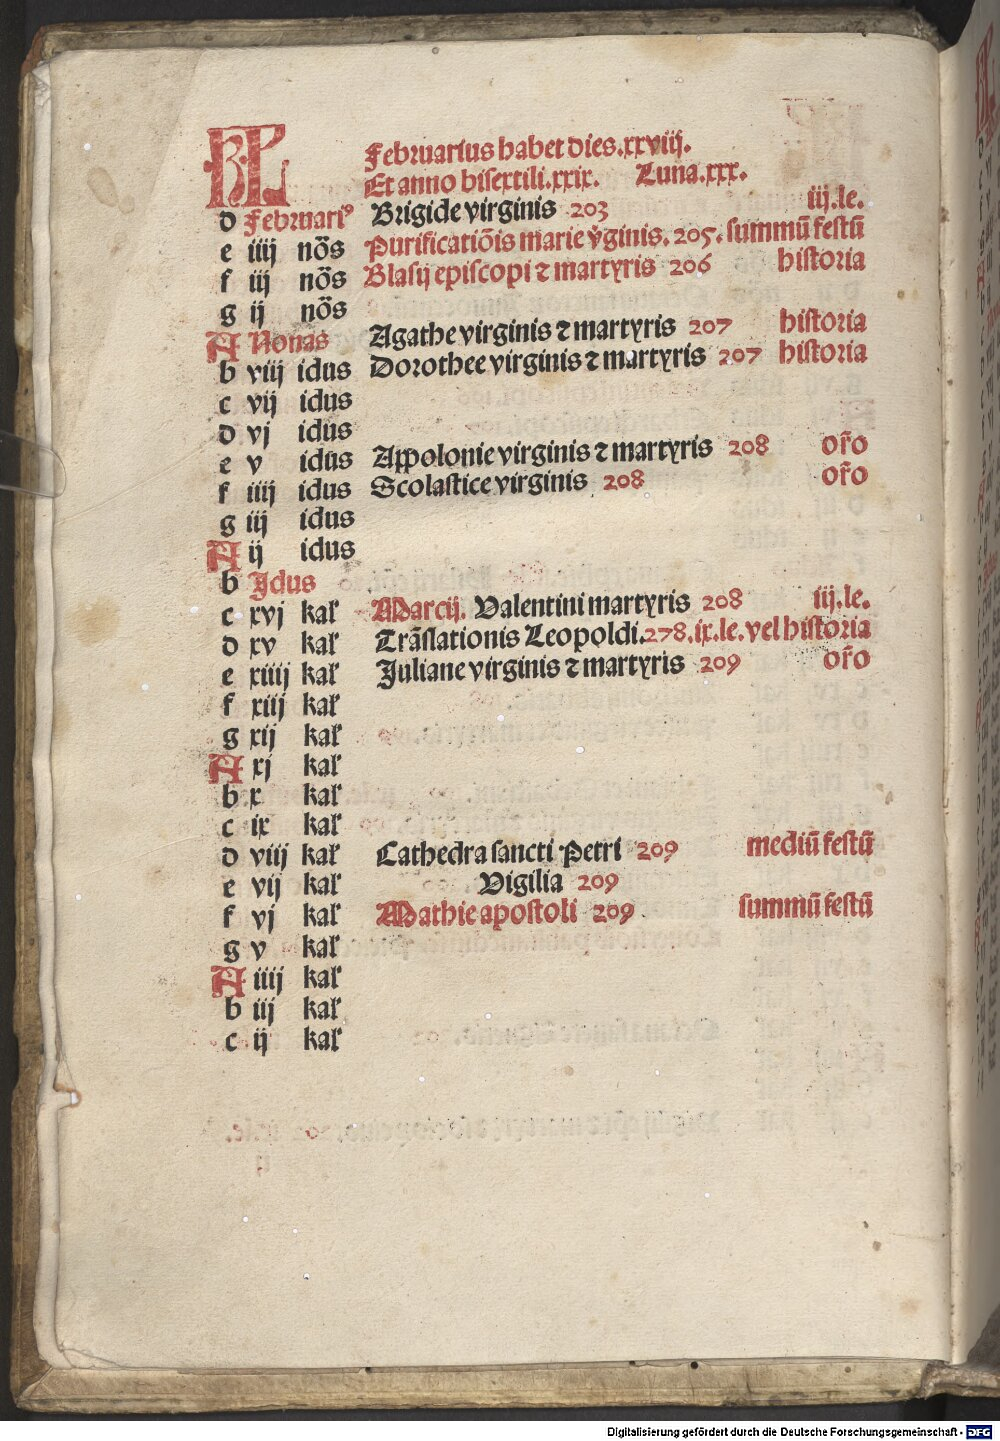 KL Februarius habet dies.xxviij.
Et anno bisextili.xxix. Luna.xxx.
d Februariꝰ Brigide virginis 203 iij.le.
e iiij nōs Purificatiōis marie v̓ginis. 205. summū festū
f iij nōs Blasij episcopi ⁊ martyris 206 historia
g ij nōs
A Nonas Agathe virginis ⁊ martyris 207 historia
b viij idus Dorothee virginis ⁊ martyris 207 historia
c vij idus
d vj idus
e v idus Appolonie virginis ⁊ martyris 208 or̄o
f iiij idus Scolastice virginis 208 or̄o
g iij idus
A ij idus
b Jdus
c xvj kal̓ Marcij. Valentini martyris 208 iij.le.
d xv kal̓ Trāslationis Leopoldi.278.ix.le.vel historia
e xiiij kal̓ Juliane virginis ⁊ martyris 209 or̄o
f xiij kal̓
g xij kal̓
A xj kal̓
b x kal̓
c ix kal̓
d viij kal̓ Cathedra sancti Petri 209 mediū festū
e vij kal̓ Vigilia 209
f vj kal̓ Mathie apostoli 209 summū festū
g v kal̓
A iiij kal̓
b iij kal̓
c ij kal̓
Digitalisierung gefördert durch die Deutsche Forschungsgemeinschaft - DFG